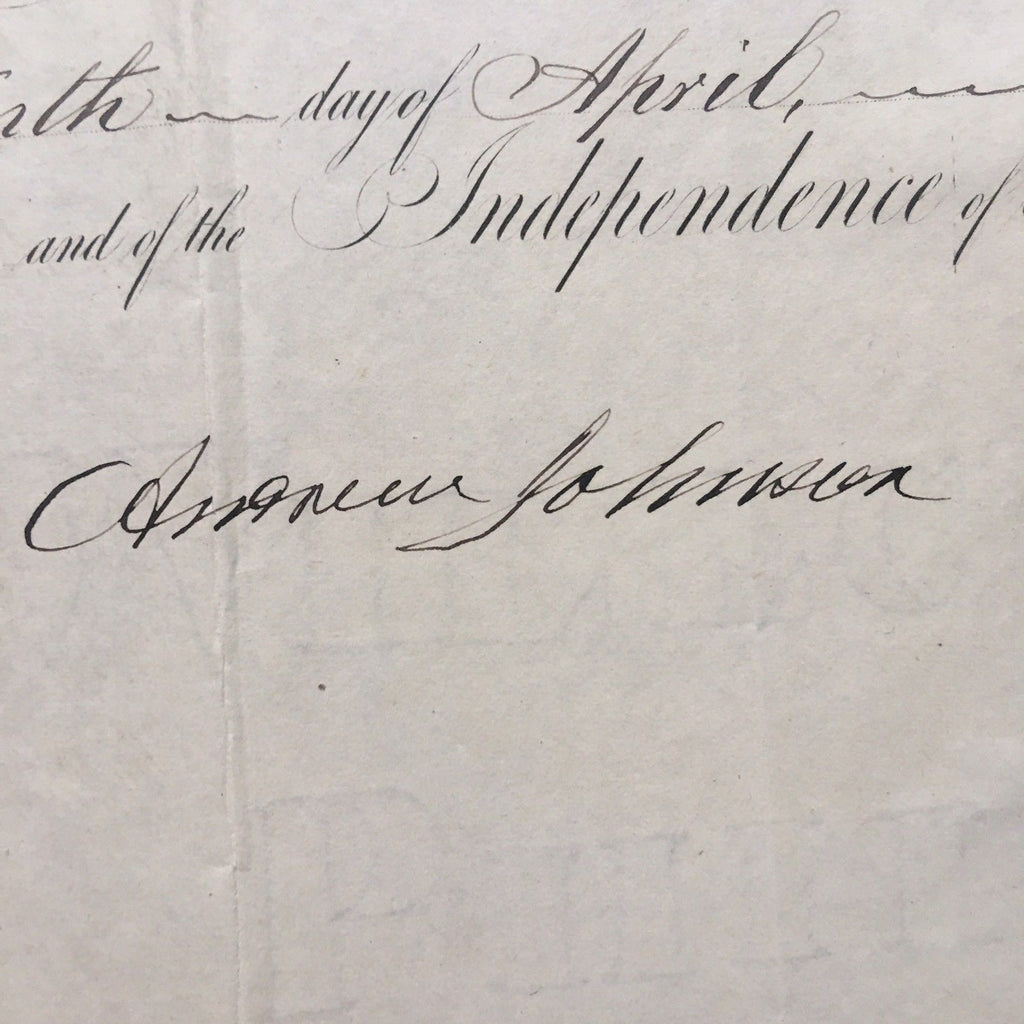 day of April,
and of the Independence of
Andrew Johnson